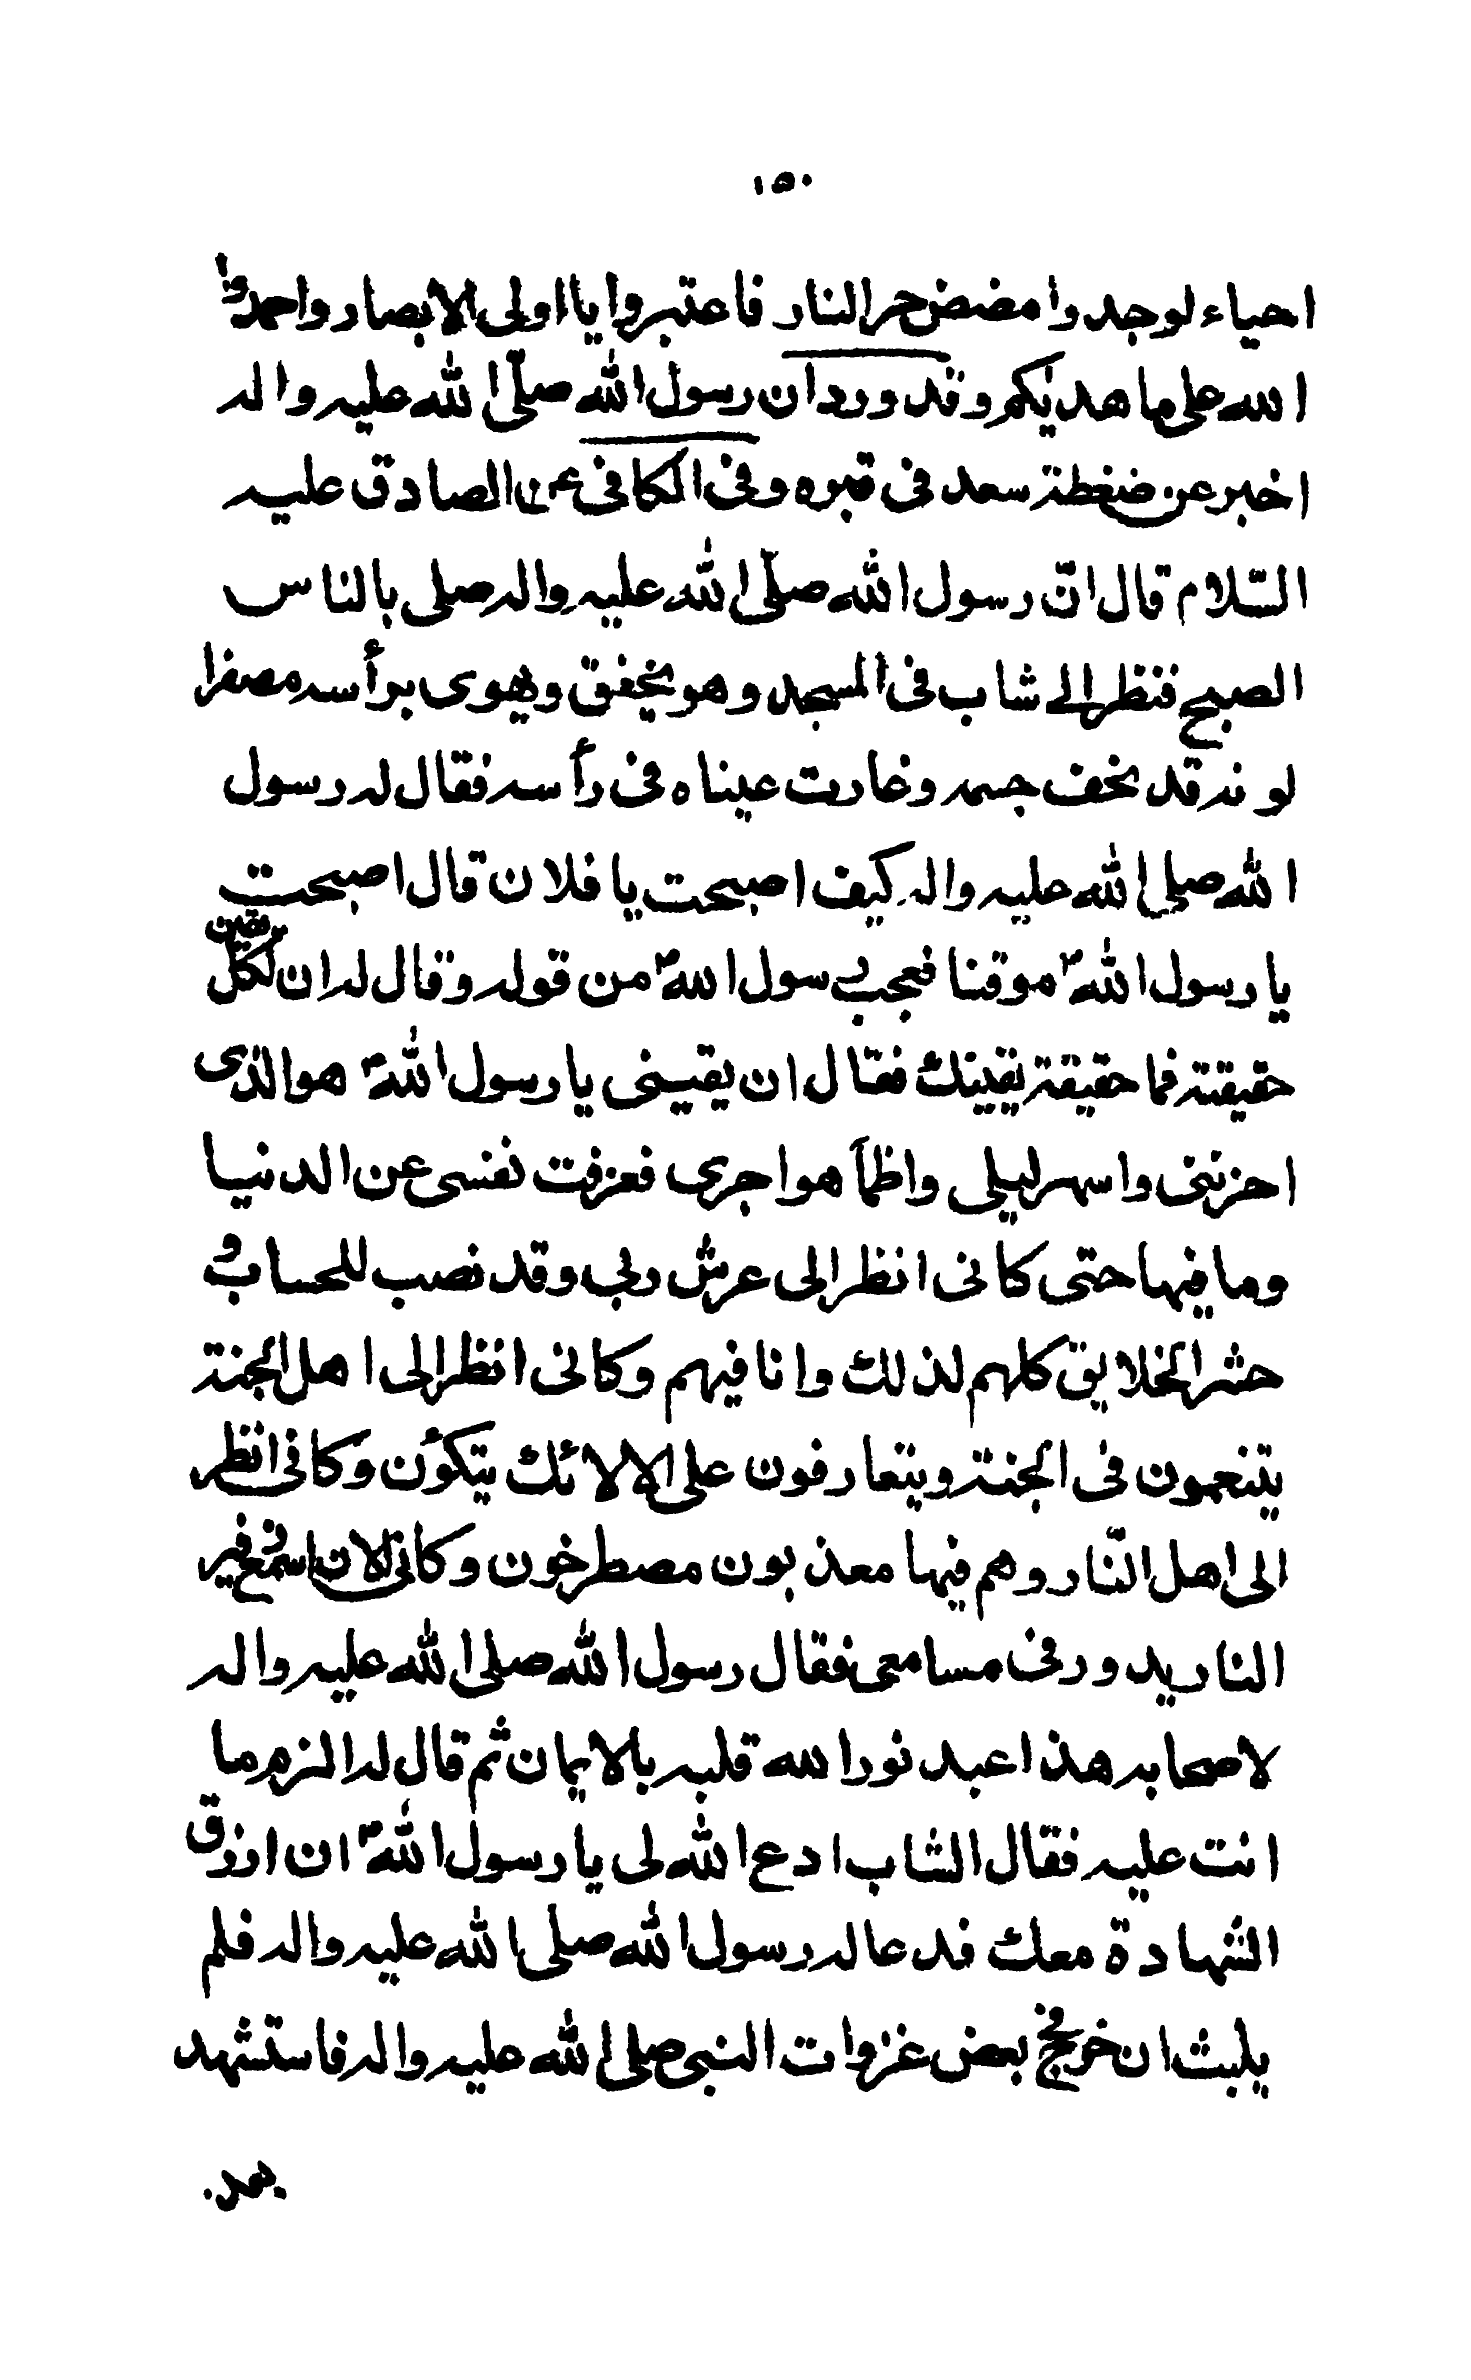 ١٥٠
احياء لوجدوا مضض حر النار فاعتبروا يا اولى الابصار واحمدوا
الله على ما هديكم وقد ورد ان رسول الله صلّى الله عليه واله
اخبر عن ضغطة سعد فى قبره وفى الكافى عن الصادق عليه
السّلام قال انّ رسول الله صلّى الله عليه واله صلى بالناس
الصبح فنظر الى شاب فى المسجد وهو يخفق ويهوى برأسه مصفرا
لونه قد نخف جسمه وغارت عيناه فى رأسه فقال له رسول
الله صلى الله عليه واله كيف اصبحت يا فلان قال اصبحت
يا رسول الله ص موقنا فعجب رسول الله ص من قوله وقال له ان لكل يقين
حقيقة فما حقيقة يقينك فقال ان يقينى يا رسول الله ص هو الذى
احزننى واسهر ليلى واظمأ هواجرى فعزفت نفسى عن الدنيا
وما فيها حتى كانى انظر الى عرش ربى وقد نصب للحساب و
حشر الخلايق كلهم لذلك وانا فيهم وكانى انظر الى اهل الجنة
يتنعمون فى الجنة ويتعارفون على الارائك يتكؤن وكانى انظر
الى اهل النّار وهم فيها معذبون مصطرخون وكانى الان اسمع زفير
النار يدور فى مسامعى فقال رسول الله صلى الله عليه واله
لاصحابه هذا عبد نور الله قلبه بالايمان ثم قال له الزم ما
انت عليه فقال الشاب ادع الله لى يا رسول الله ص ان ارزق
الشهادة معك فدعا له رسول الله صلى الله عليه واله فلم
يلبث ان خرج فى بعض غزوات النبى صلى الله عليه واله فاستشهد
بعد